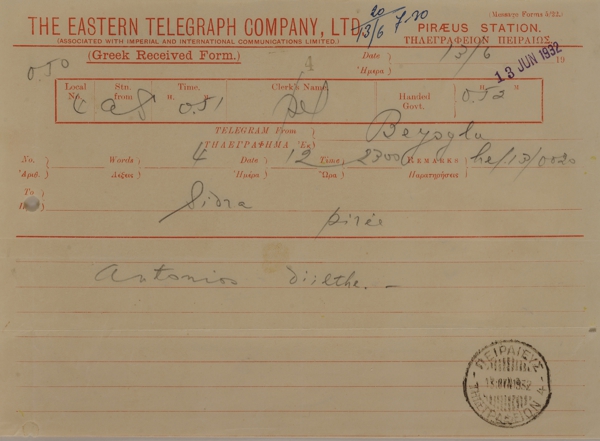 THE EASTERN TELEGRAPH COMPANY, LTD.
(Message Forms 5/22.)
20
13/6 7.20
(ASSOCIATED WITH IMPERIAL AND INTERNATIONAL COMMUNICATIONS LIMITED.)
PIRÆUS STATION.
ΤΗΛΕΓΡΑΦΕΙΟΝ ΠΕΙΡΑΙΩΣ
(Greek Received Form.)
4
Date
Ἡμέρα
13/6
19
13 JUN 1932
0.50
Local
No.
Stn.
from
Time.
0.51
Clerk's Name.
Handed
Govt.
0.52
TELEGRAM From
ΤΗΛΕΓΡΑΦΗΜΑ Ἐκ
Beyoglu
No.
Ἀριθ.
Words
Λέξεις
4
Date
Ἡμέρα
12
Time
Ὥρα
2300
REMARKS
Παρατηρήσεις
he/13/0020
To
Sidra
pirée
Antonios diilthe. —
ΠΕΙΡΑΙΕΥΣ
ΤΗΛΕΓΡΑΦΕΙΟΝ